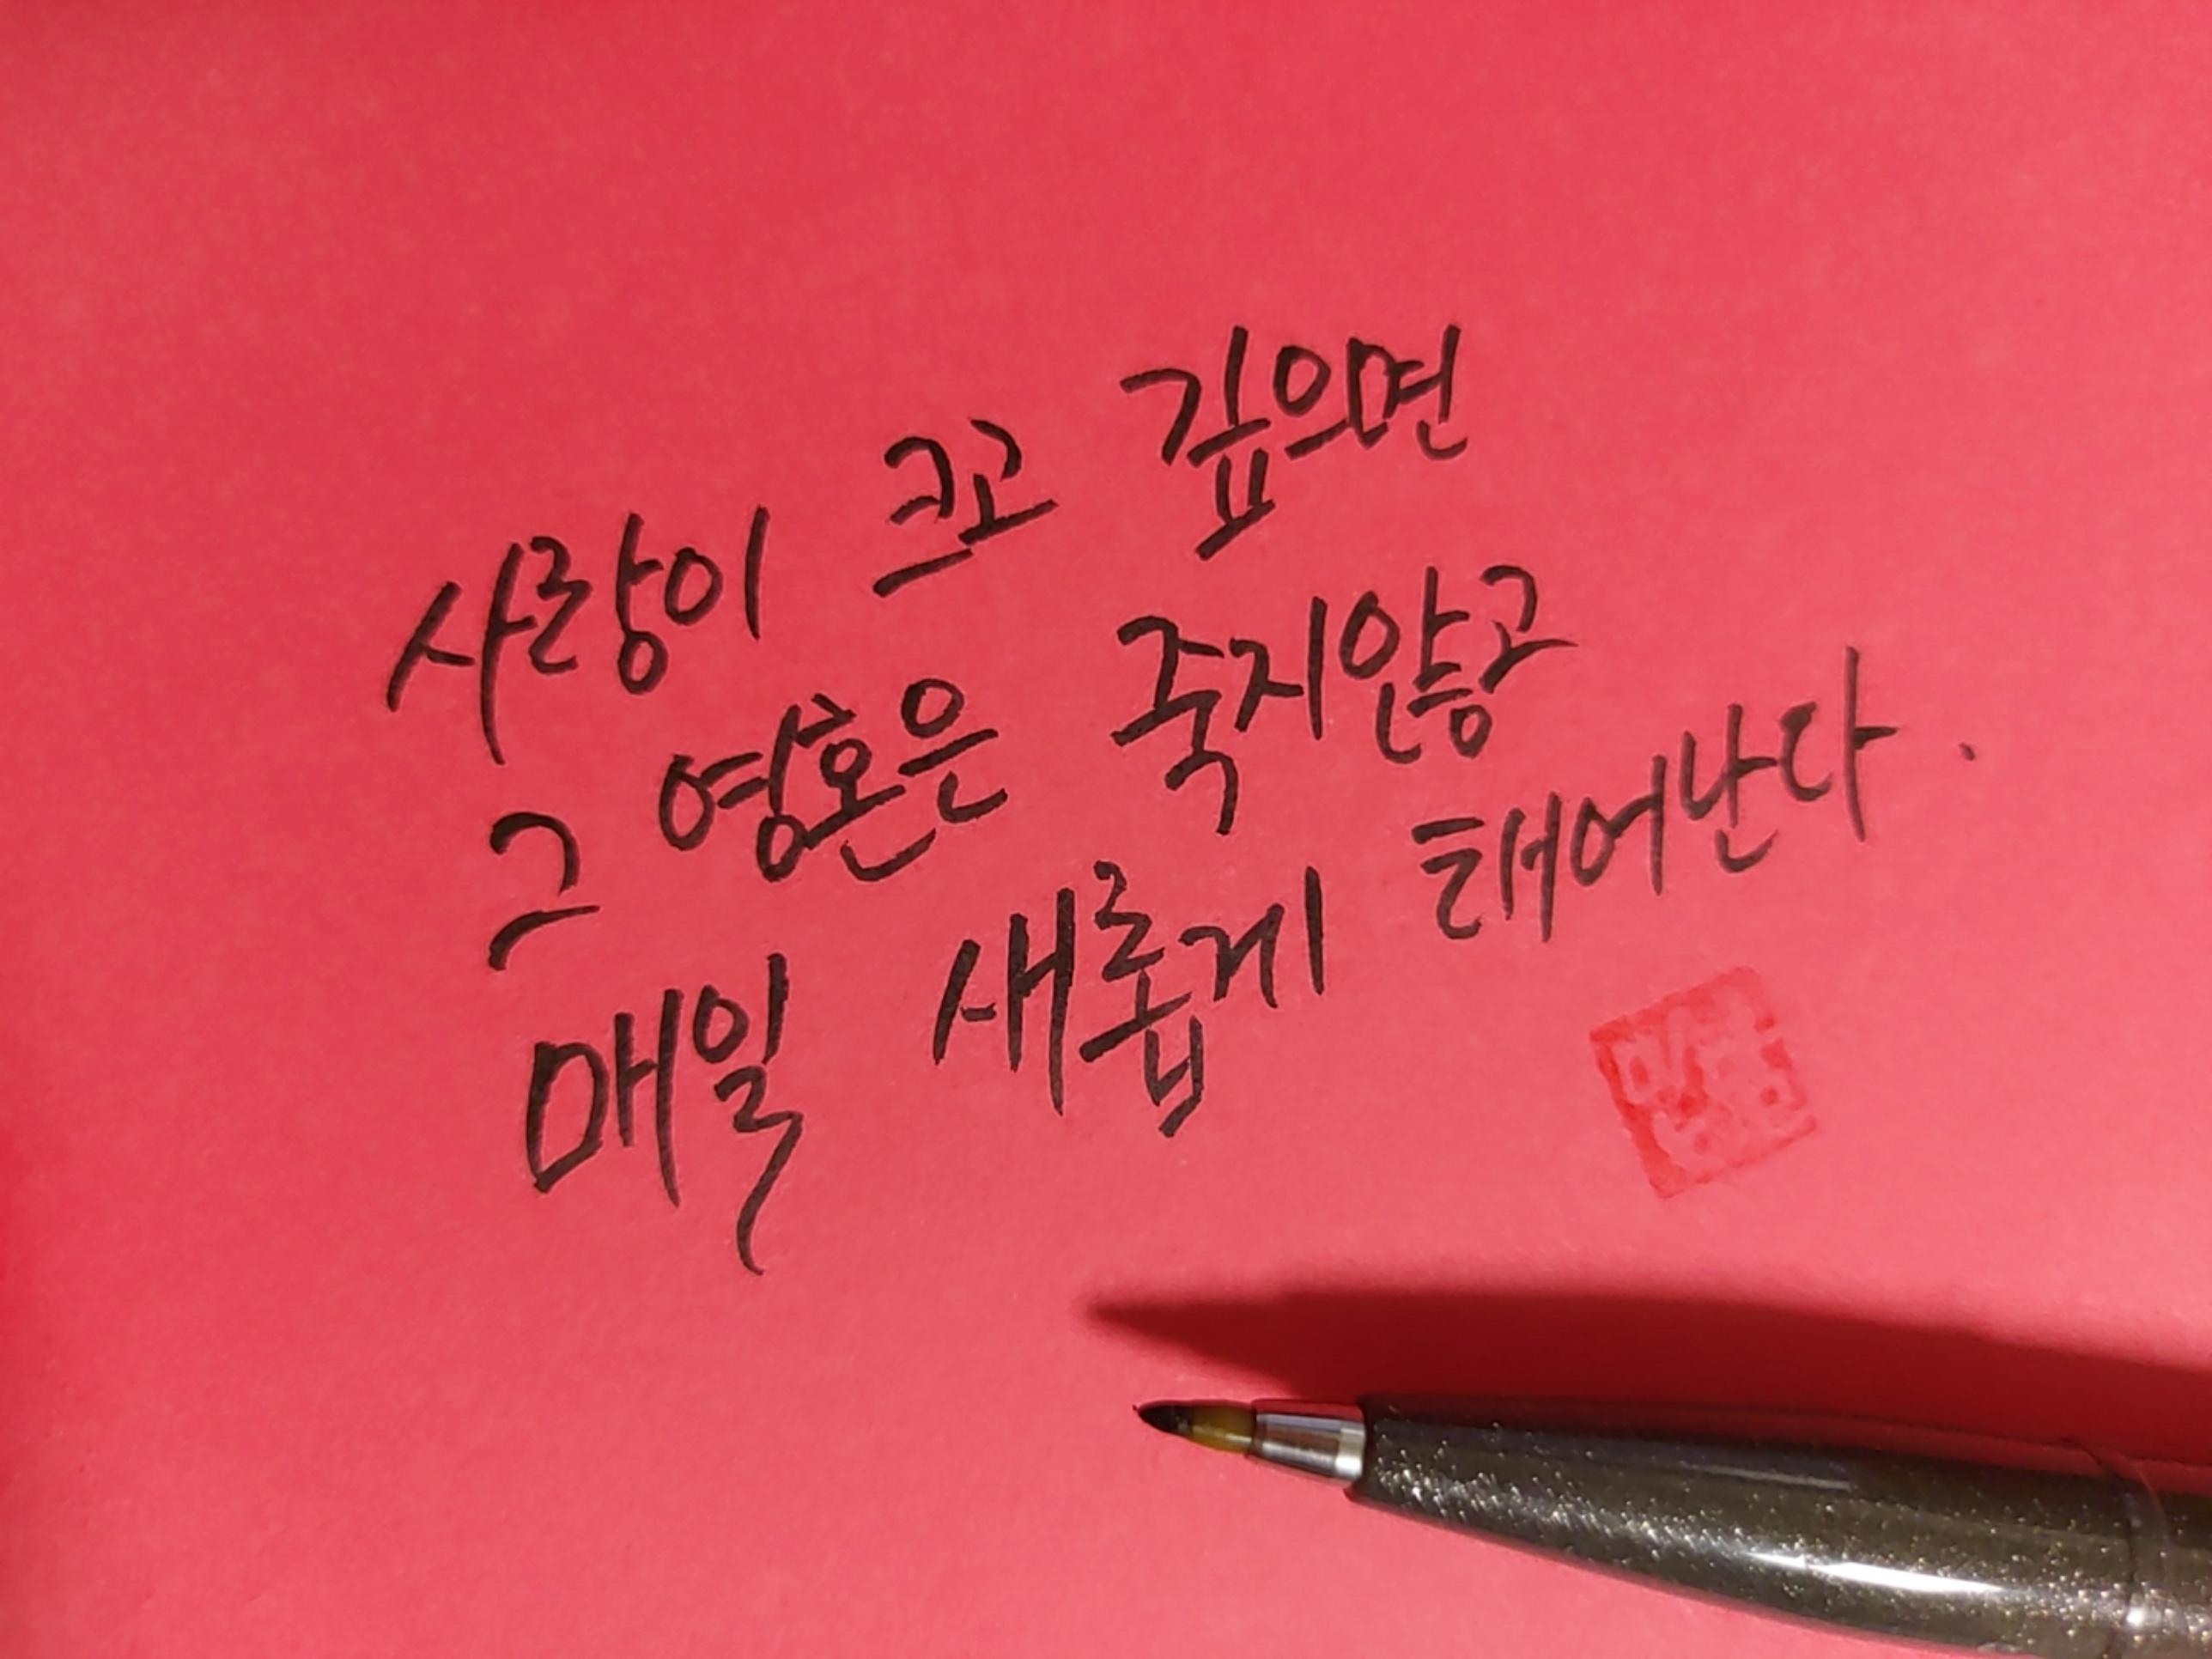 사랑이 크고 깊으면
그 영혼은 죽지않고
매일 새롭게 태어난다.